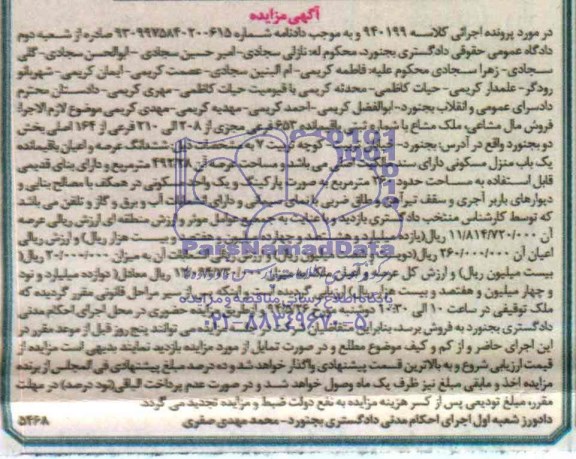 آگهی مزایده
در مورد پرونده اجرائی کلاسه ۹۴۰۱۹۹ و به موجب دادنامه شماره ۹۳-۹۹۷۵۸۴۰۲۰۰۶۱۵ صادره از شعبه دوم
دادگاه عمومی حقوقی دادگستری بجنورد، محکوم له: نازلی سجادی- امیر حسین سجادی - ابوالحسن سجادی- گلی
سجادی- زهرا سجادی محکوم علیه: فاطمه کریمی- ام البنین سجادی- عصمت کریمی- ایمان کریمی- شهربانو
رودگر- علمدار کریمی- حیات کاظمی- محدثه کریمی با قیمومیت حیات کاظمی- مهری کریمی- دادستان محترم
دادسرای عمومی و انقلاب بجنورد- ابوالفضل کریمی- احمد کریمی- مهدیه کریمی- مهدی کریمی موضوع لازم الاجرا:
فروش مال مشاعی، ملک مشاع با باقیمانده ۶۵۳ فرعی مجزی از ۲۰۸ الی ۲۱۰ فرعی از ۱۶۴ اصلی بخش
دو بجنورد واقع در آدرس: بجنورد- خیابان کوچه ۷ به مشخصات ششدانگ عرصه و اعیان باقیمانده
یک باب منزل مسکونی دارای می باشد و مساحت عرصه آن ۴۹۲/۳۸ مترمربع و دارای بنای قدیمی
قابل استفاده به مساحت حدود مترمربع به صورت پارکینگ و یک واحد مسکونی در همکف با مصالح بنایی و
دیوارهای باربر آجری و سقف طاق ضربی با نمای سیمانی و دارای آب و برق و گاز و تلفن می باشد
که توسط کارشناس منتخب دادگستری بازدید و با عنایت به عوامل موثر و ارزش منطقه ای ارزش ریالی عرصه
آن ۱۱/۸۱۴/۷۲۰/۰۰۰ ریال (یازده میلیارد و و بیست هزار ریال) و ارزش ریالی
اعیان آن ۲۶۰/۰۰۰/۰۰۰ ریال آن به میزان ۲۰/۰۰۰/۰۰۰ ریال(
بیست میلیون ریال) و ارزش کل عرصه و اعیان ریال معادل( دوازده میلیارد و نود
و چهار میلیون و هفتصد و بیست هزار ریال) ارزیابی گردیده است و اینک پس از سیر مراحل قانونی مقرر گردیده که
ملک توقیفی در ساعت ۱۰ الی ۱۰:۳۰ دوشنبه مزایده حضوری در محل اجرای احکام مدنی
دادگستری بجنورد به فروش برسد، بنابراین می توانند پنج روز قبل از موعد مقرر در
این اجرای حاضر و از کم و کیف موضوع مطلع و در صورت تمایل از مورد مزایده بازدید نمایند بدیهی است مزایده از
قیمت ارزیابی شروع و به بالاترین قیمت پیشنهادی واگذار خواهد شد و ده درصد مبلغ پیشنهادی فی المجلس از برنده
مزایده اخذ و مابقی مبلغ نیز ظرف یک ماه وصول خواهد شد و در صورت عدم پرداخت الباقی(نود درصد) در مهلت
مقرره، مبلغ تودیعی پس از کسر هزینه مزایده به نفع دولت ضبط و مزایده تجدید می گردد.
دادورز شعبه اول اجرای احکام مدنی دادگستری بجنورد- محمد مهدی صفری ۵۴۶۸
ParsNamadData
پایگاه اطلاع رسانی مناقصه و مزایده
۰۲۱-۸۸۳۴۹۶۷۰-۵